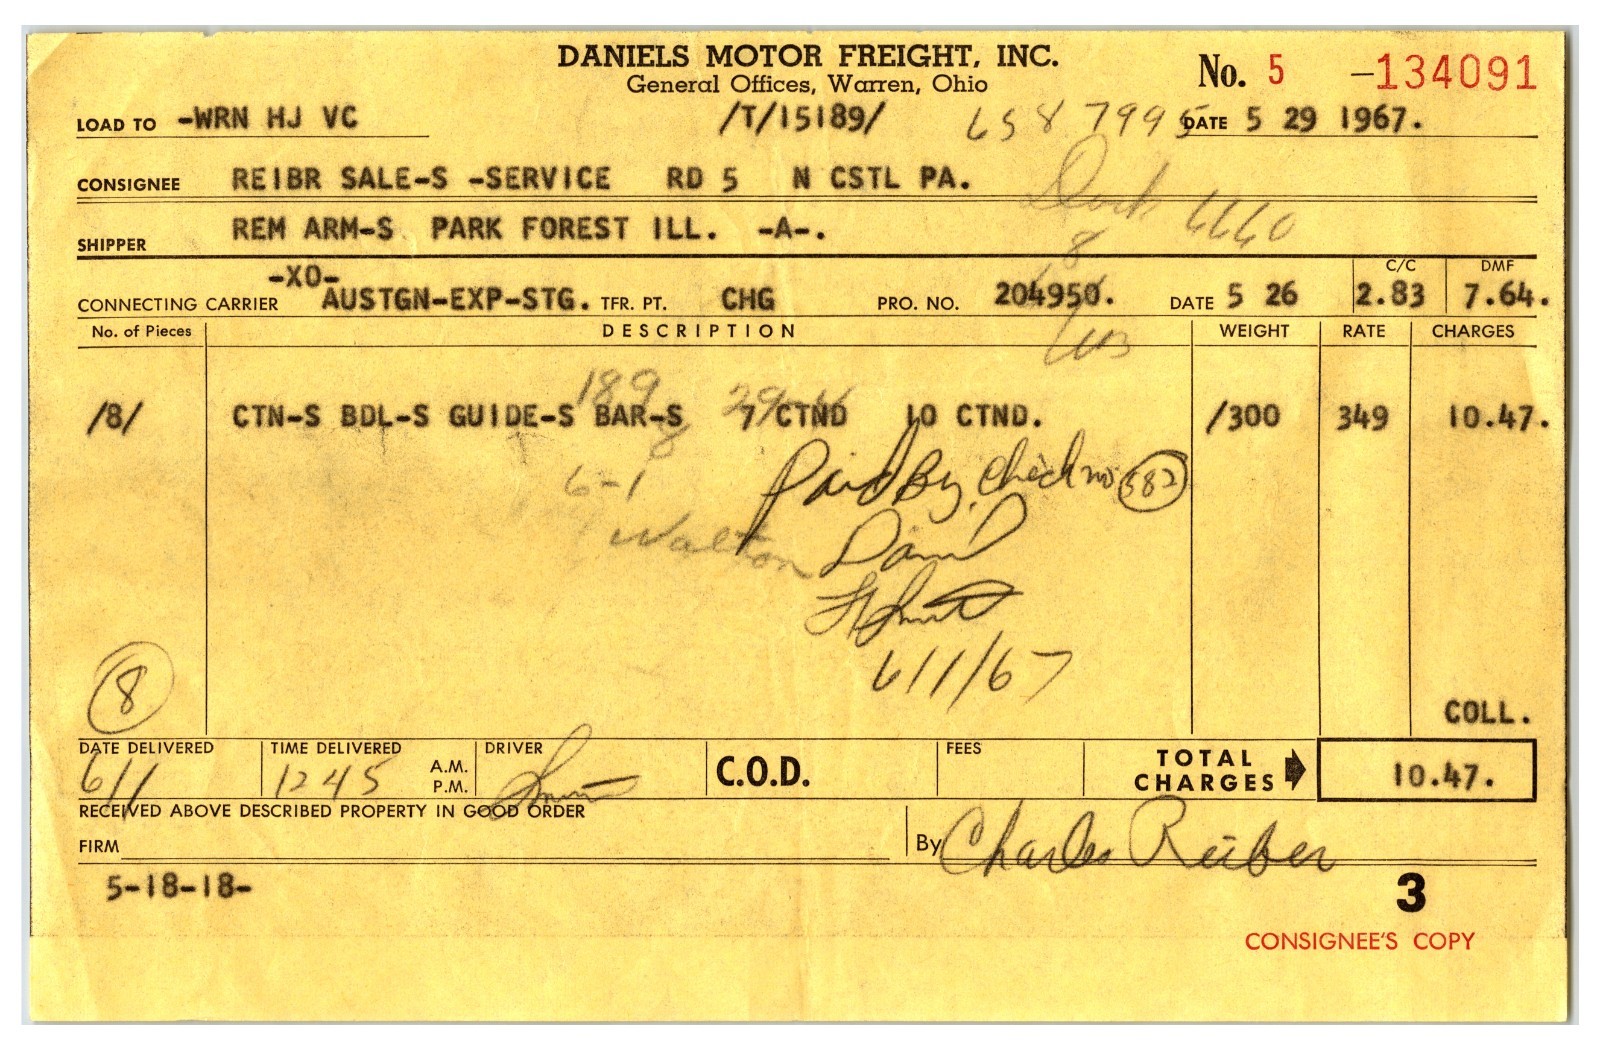 DANIELS MOTOR FREIGHT, INC.
General Offices, Warren, Ohio
No. 5 -134091
LOAD TO -WRN HJ VC /T/15189/ 658 7995 DATE 5 29 1967.
CONSIGNEE REIBR SALE-S -SERVICE RD 5 N CSTL PA.
Dock 4640
SHIPPER REM ARM-S PARK FOREST ILL. -A-.
8
-XO- C/C DMF
CONNECTING CARRIER AUSTGN-EXP-STG. TFR. PT. CHG PRO. NO. 204950. DATE 5 26 2.83 7.64.
No. of Pieces DESCRIPTION WEIGHT RATE CHARGES
189
/8/ CTN-S BDL-S GUIDE-S BAR-S 7 CTND 10 CTND. /300 349 10.47.
8
6-1 Paid By Check no 582
Walton
6/1/67
8
COLL.
DATE DELIVERED TIME DELIVERED A.M. P.M. DRIVER C.O.D. FEES TOTAL CHARGES 10.47.
6/1 1245
RECEIVED ABOVE DESCRIBED PROPERTY IN GOOD ORDER
FIRM By Charles Reiber
5-18-18-
3
CONSIGNEE'S COPY